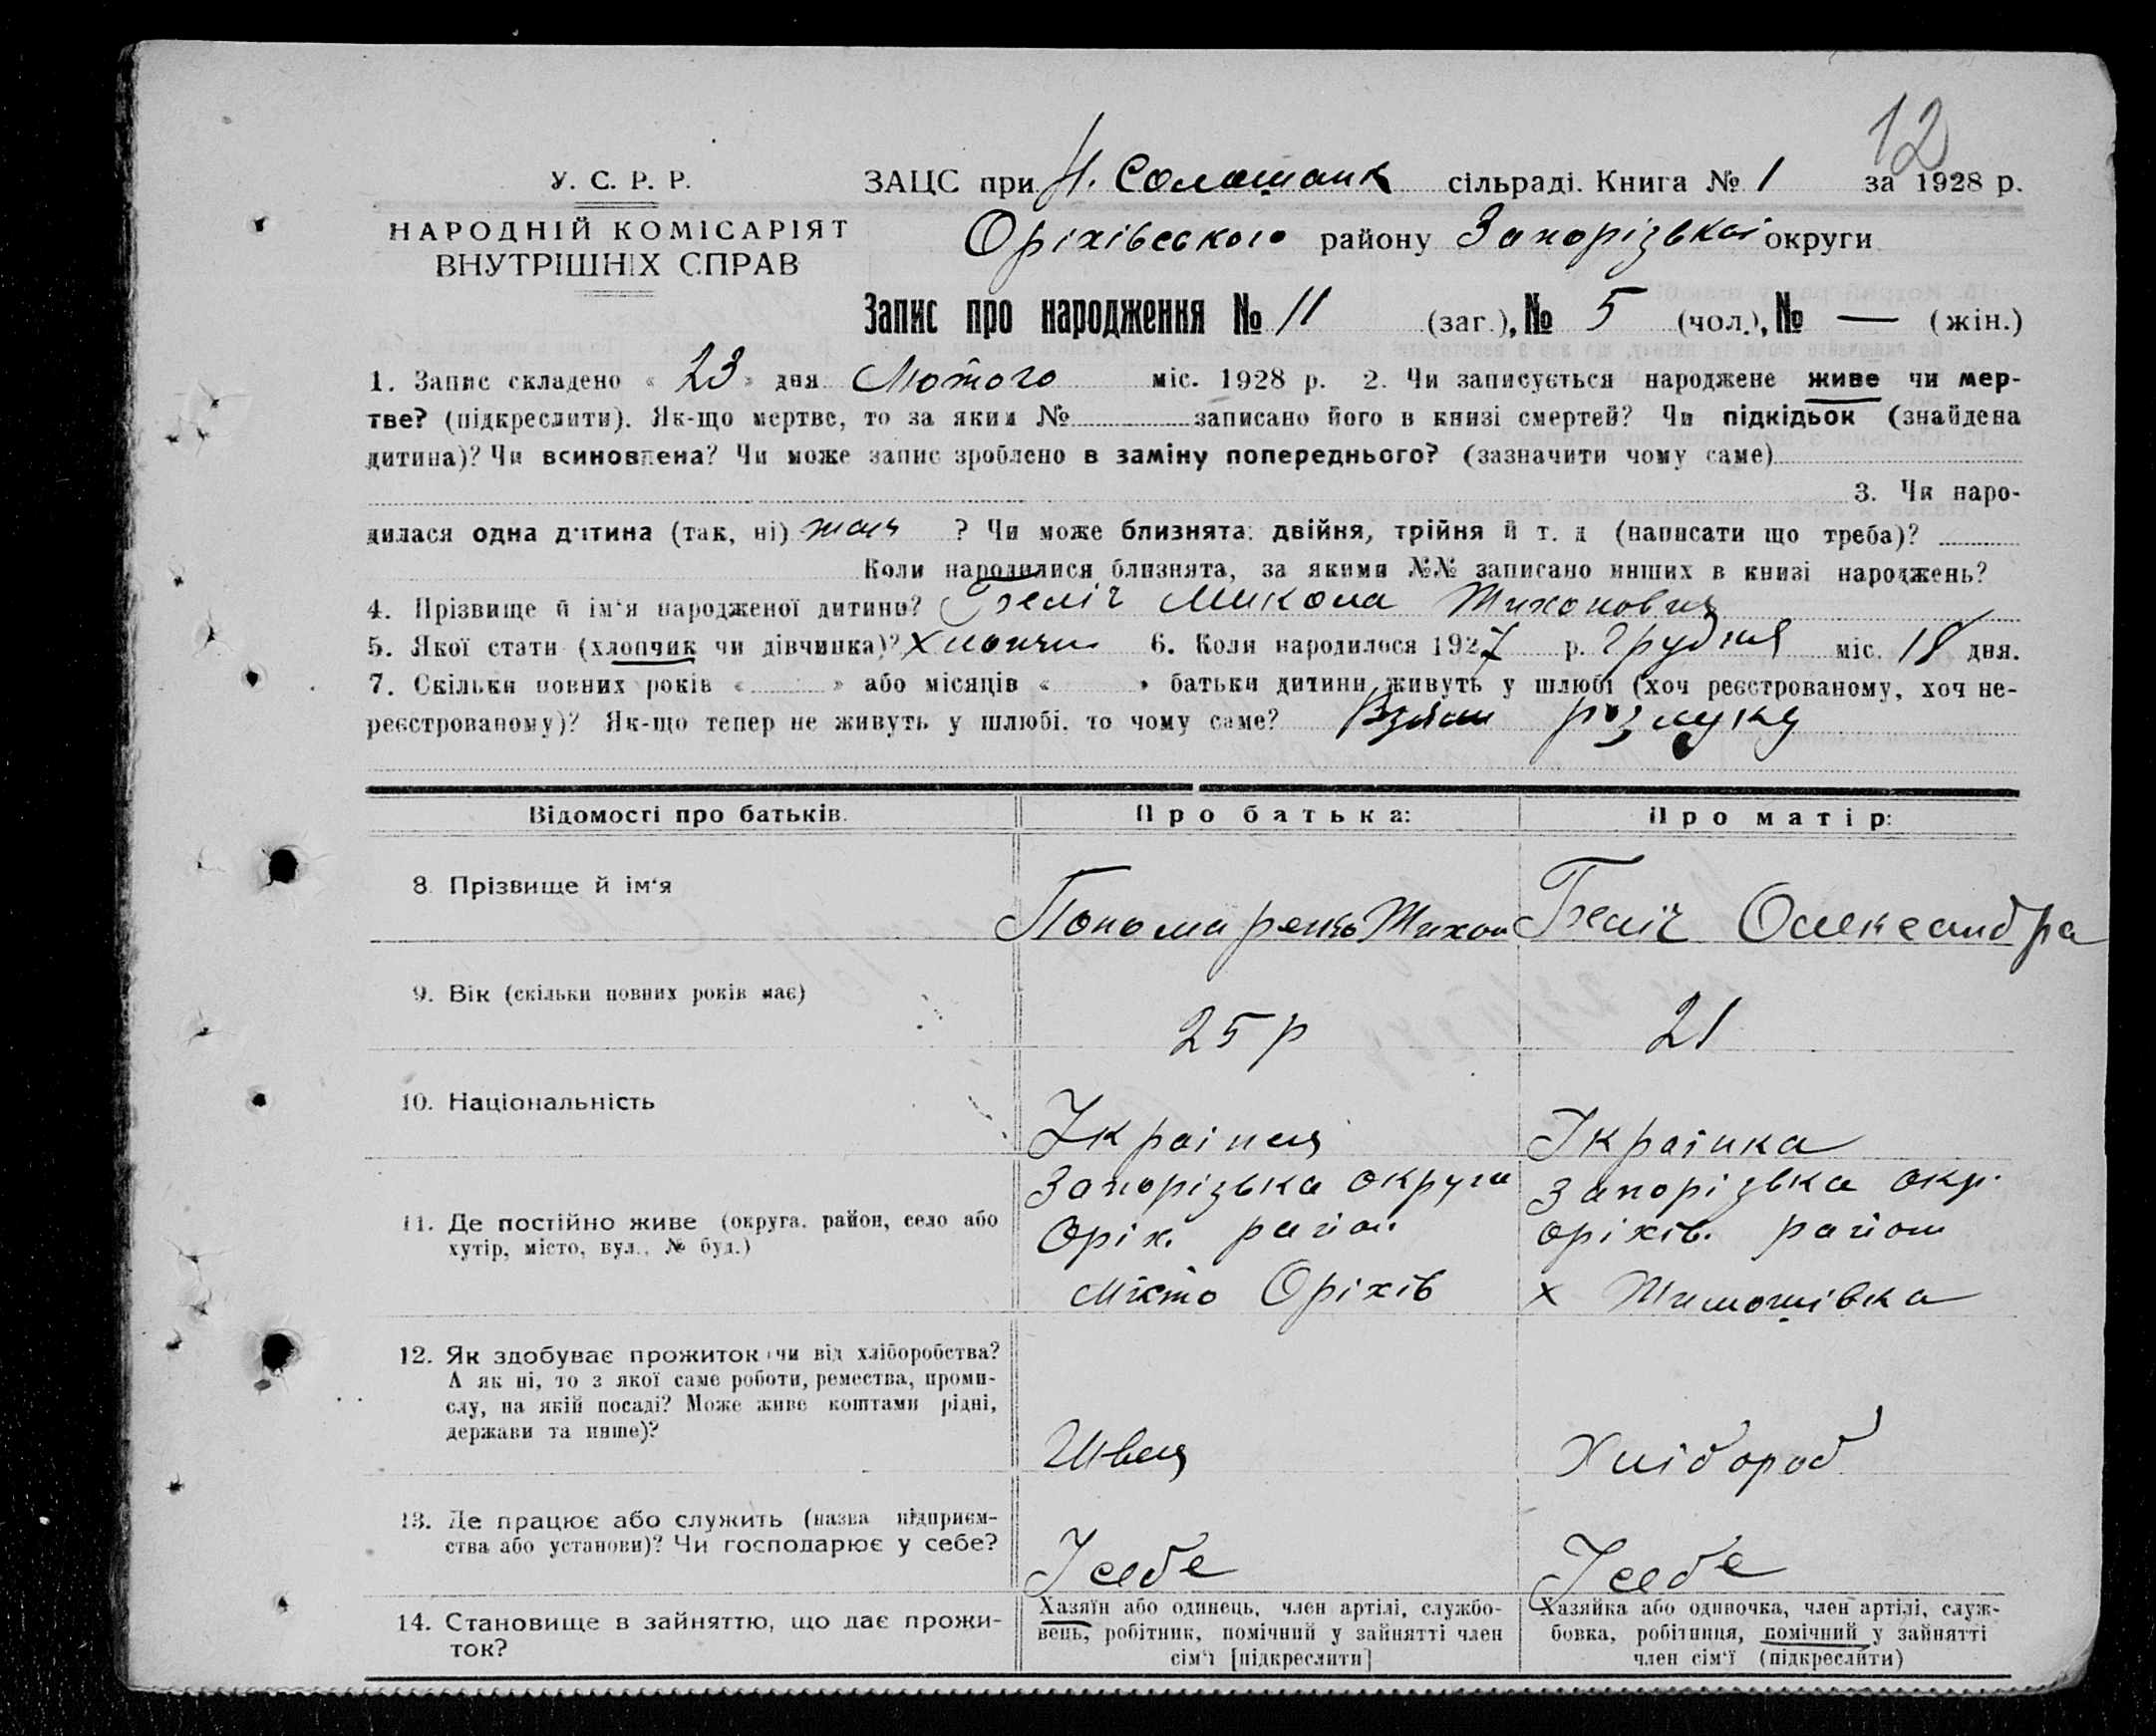 12
У. С. Р. Р.
НАРОДНІЙ КОМІСАРІЯТ
ВНУТРІШНІХ СПРАВ
ЗАЦС при Н. сільраді. Книга № 1 за 1928 р.
Оріхівського району Запорізької округи
Запис про народження № 11 (заг.), № 5 (чол.), № — (жін.)
1. Запис складено « 23 » дня Лютого міс. 1928 р. 2. Чи записується народжене живе чи мер-
тве? (підкреслити). Як-що мертве, то за яким № записано його в книзі смертей? Чи підкідьок (знайдена
дитина)? Чи всиновлена? Чи може запис зроблено в заміну попереднього? (зазначити чому саме)
3. Чи наро-
дилася одна дитина (так, ні) так ? Чи може близнята: двійня, трійня й т. д (написати що треба)?
Коли народилися близнята, за якими №№ записано инших в книзі народжень?
4. Прізвище й ім'я народженої дитини? Микола Тихонович
5. Якої стати (хлопчик чи дівчинка)? Хлопчик 6. Коли народилося 1927 р. Грудня міс. 18 дня.
7. Скільки повних років « » або місяців « » батьки дитини живуть у шлюбі (хоч реєстрованому, хоч не-
реєстрованому)? Як-що тепер не живуть у шлюбі, то чому саме? Взяли розлуку
Відомості про батьків. Про батька: Про матір:
8. Прізвище й ім'я Пономаренко Тихон Олександра
9. Вік (скільки повних років має) 25 р 21
10. Національність Українец Українка
11. Де постійно живе (округа, район, село або
хутір, місто, вул., № буд.)
Запорізька округа
Оріх. район
Місто Оріхів
Запорізька окр.
Оріхів. район
х Тимошівка
12. Як здобуває прожиток чи від хліборобства?
А як ні, то з якої саме роботи, ремества, проми-
слу, на якій посаді? Може живе коштами рідні,
держави та инше)?
Швец
Хлібороб
13. Де працює або служить (назва підприєм-
ства або установи)? Чи господарює у себе?
У себе
У себе
14. Становище в зайняттю, що дає прожи-
ток?
Хазяїн або одинець, член артілі, службо-
вець, робітник, помічний у зайнятті член
сім'ї [підкреслити]
Хазяйка або одиночка, член артілі, служ-
бовка, робітниця, помічний у зайнятті
член сім'ї (підкреслити)